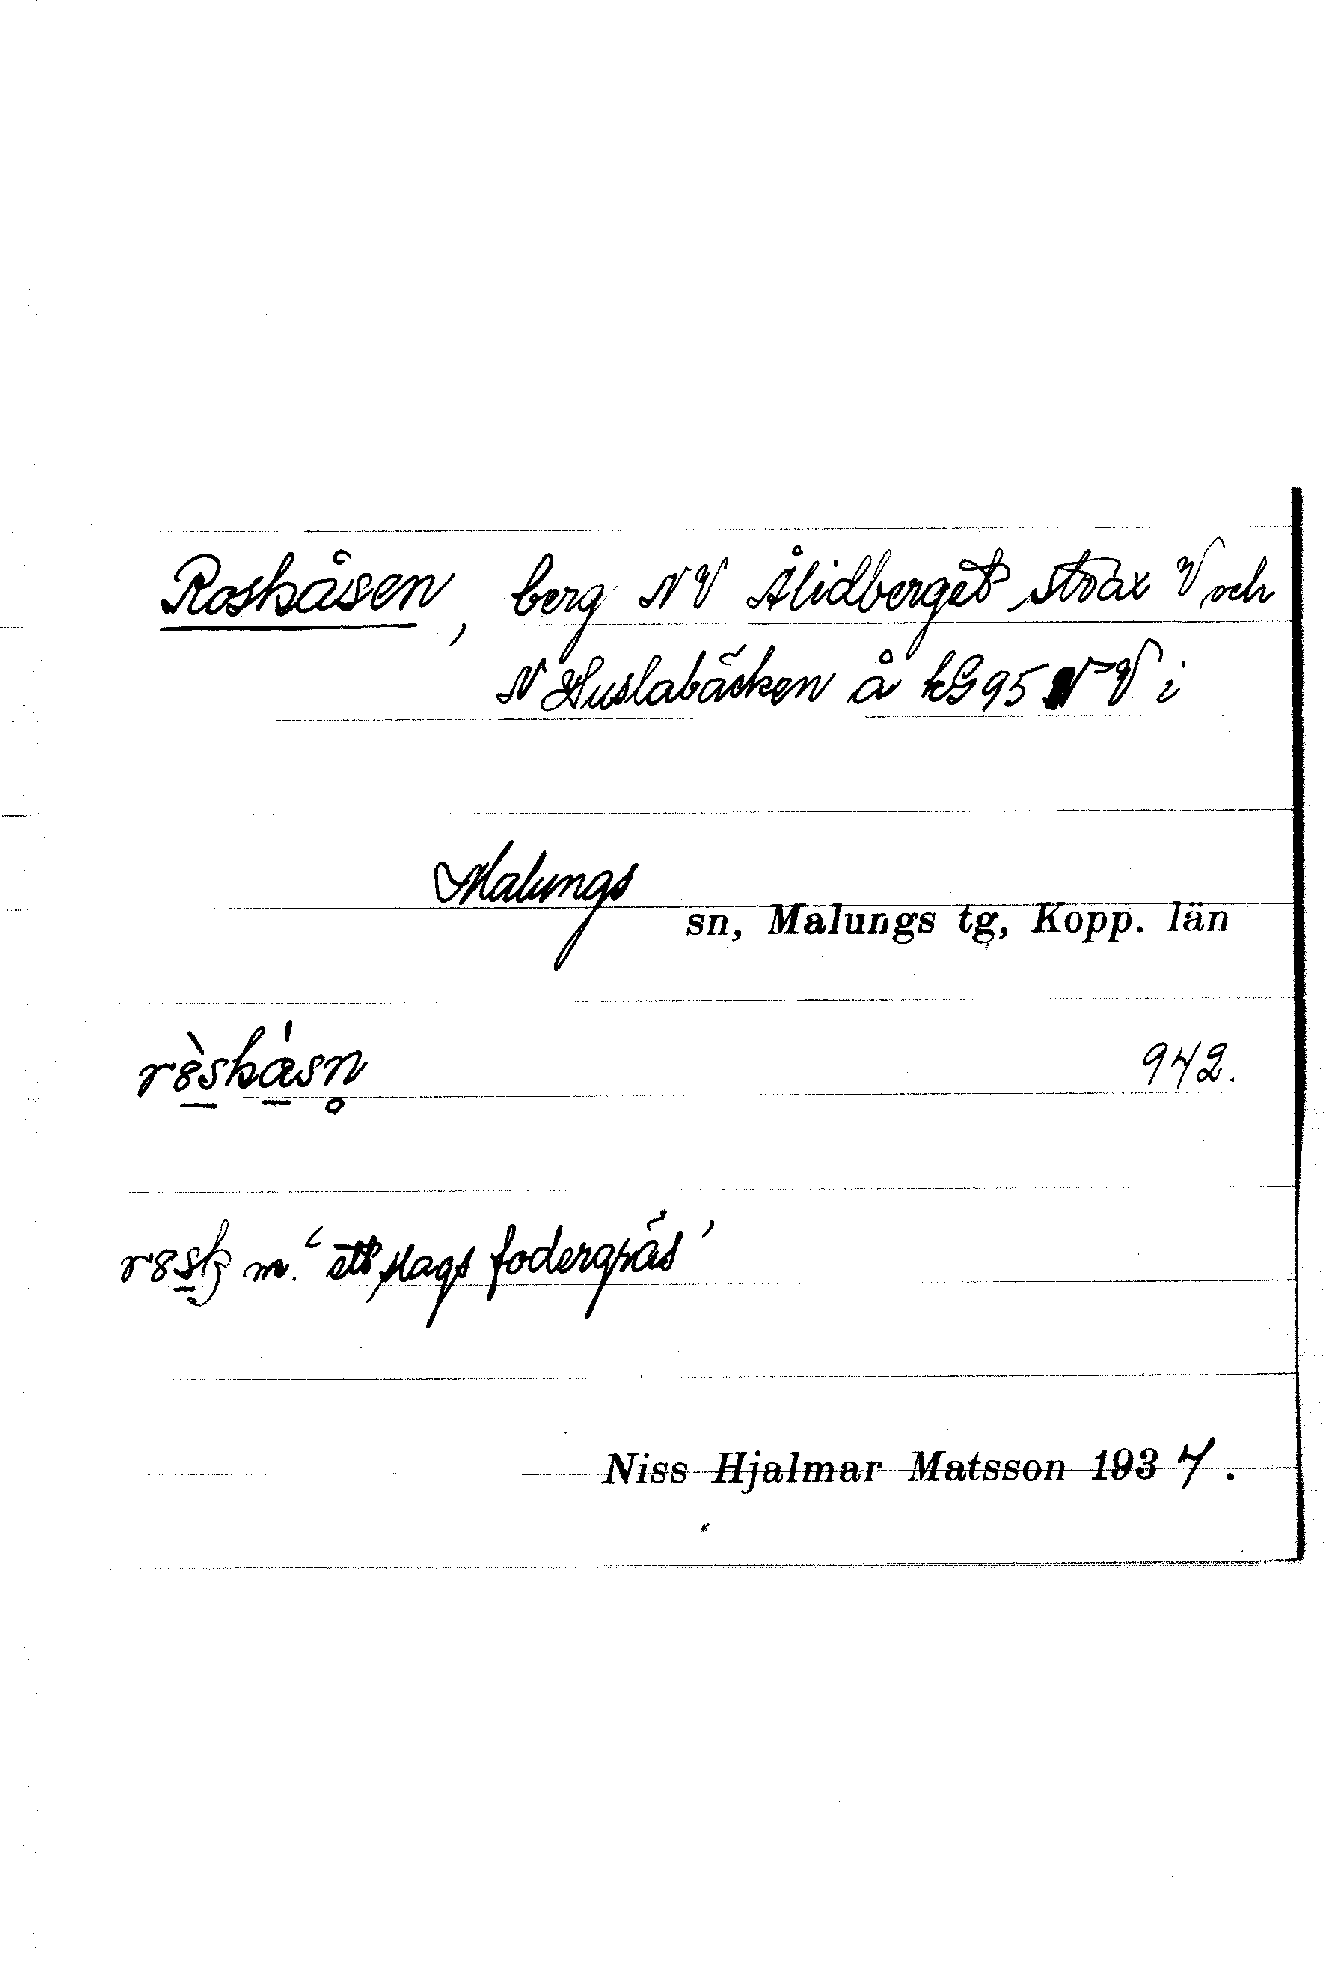 Roskåsen, berg NV Ålidberget strax V och
N Huslabäcken å kG95 NV i
Malungs sn, Malungs tg, Kopp. län
942.
m. 'ett slags fodergräs'
Niss Hjalmar Matsson 1934.